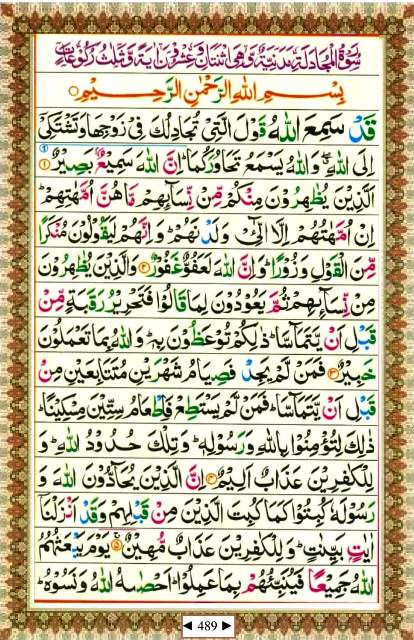 سُوْرَةُ الْمُجَادِلَةِ مَدَنِيَّةٌ وَّهِيَ اثْنَتَانِ وَعِشْرُوْنَ اٰيَةً وَّثَلٰثُ رُكُوْعَاتٍ
بِسْمِ اللهِ الرَّحْمٰنِ الرَّحِيْمِ
قَدْ سَمِعَ اللهُ قَوْلَ الَّتِيْ تُجَادِلُكَ فِيْ زَوْجِهَا وَتَشْتَكِيْٓ
اِلَى اللهِ ۖ وَاللهُ يَسْمَعُ تَحَاوُرَكُمَا ؕ اِنَّ اللهَ سَمِيْعٌۢ بَصِيْرٌ ۝۱
اَلَّذِيْنَ يُظٰهِرُوْنَ مِنْكُمْ مِّنْ نِّسَآئِهِمْ مَّا هُنَّ اُمَّهٰتِهِمْ ؕ
اِنْ اُمَّهٰتُهُمْ اِلَّا الّٰٓـِٔيْ وَلَدْنَهُمْ ؕ وَاِنَّهُمْ لَيَقُوْلُوْنَ مُنْكَرًا
مِّنَ الْقَوْلِ وَزُوْرًا ؕ وَاِنَّ اللهَ لَعَفُوٌّ غَفُوْرٌ ۝۲ وَالَّذِيْنَ يُظٰهِرُوْنَ
مِنْ نِّسَآئِهِمْ ثُمَّ يَعُوْدُوْنَ لِمَا قَالُوْا فَتَحْرِيْرُ رَقَبَةٍ مِّنْ
قَبْلِ اَنْ يَّتَمَآسَّا ؕ ذٰلِكُمْ تُوْعَظُوْنَ بِهٖ ؕ وَاللهُ بِمَا تَعْمَلُوْنَ
خَبِيْرٌ ۝۳ فَمَنْ لَّمْ يَجِدْ فَصِيَامُ شَهْرَيْنِ مُتَتَابِعَيْنِ مِنْ
قَبْلِ اَنْ يَّتَمَآسَّا ۚ فَمَنْ لَّمْ يَسْتَطِعْ فَاِطْعَامُ سِتِّيْنَ مِسْكِيْنًا ؕ
ذٰلِكَ لِتُؤْمِنُوْا بِاللهِ وَرَسُوْلِهٖ ؕ وَتِلْكَ حُدُوْدُ اللهِ ؕ وَ
لِلْكٰفِرِيْنَ عَذَابٌ اَلِيْمٌ ۝۴ اِنَّ الَّذِيْنَ يُحَآدُّوْنَ اللهَ وَ
رَسُوْلَهٗ كُبِتُوْا كَمَا كُبِتَ الَّذِيْنَ مِنْ قَبْلِهِمْ وَقَدْ اَنْزَلْنَآ
اٰيٰتٍۭ بَيِّنٰتٍ ؕ وَلِلْكٰفِرِيْنَ عَذَابٌ مُّهِيْنٌ ۝۵ يَوْمَ يَبْعَثُهُمُ
اللهُ جَمِيْعًا فَيُنَبِّئُهُمْ بِمَا عَمِلُوْا ؕ اَحْصٰىهُ اللهُ وَنَسُوْهُ ؕ
◄ 489 ►